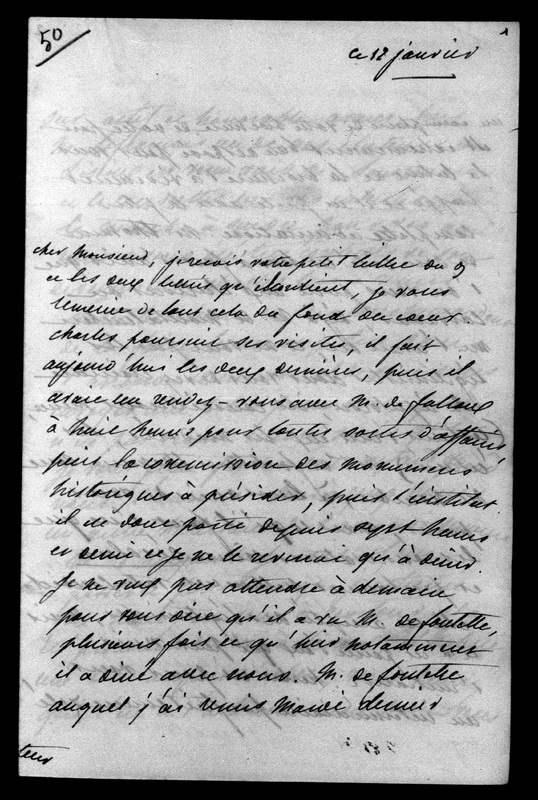 50
1
ce 12 janvier
cher Monsieur, je reçois votre petit billet du 9
et les deux lettres qu'il contient, je vous
remercie de tout cela du fond du coeur.
Charles poursuit ses visites, il fait
aujourd'hui les deux dernières, puis il
avait un rendez-vous avec M. de falloux
à huit heures pour toutes sortes d'affaires,
puis la commission des monumens
historiques à présider, puis l'institut.
il est donc parti depuis sept heures
et demie et je ne le reverrai qu'à diner.
Je ne veux pas attendre à demain
pour vous dire qu'il a vu M. de fontette,
plusieurs fois et qu'hier notamment
il a diné avec nous. M. de fontette
auquel j'ai remis Mardi dernier